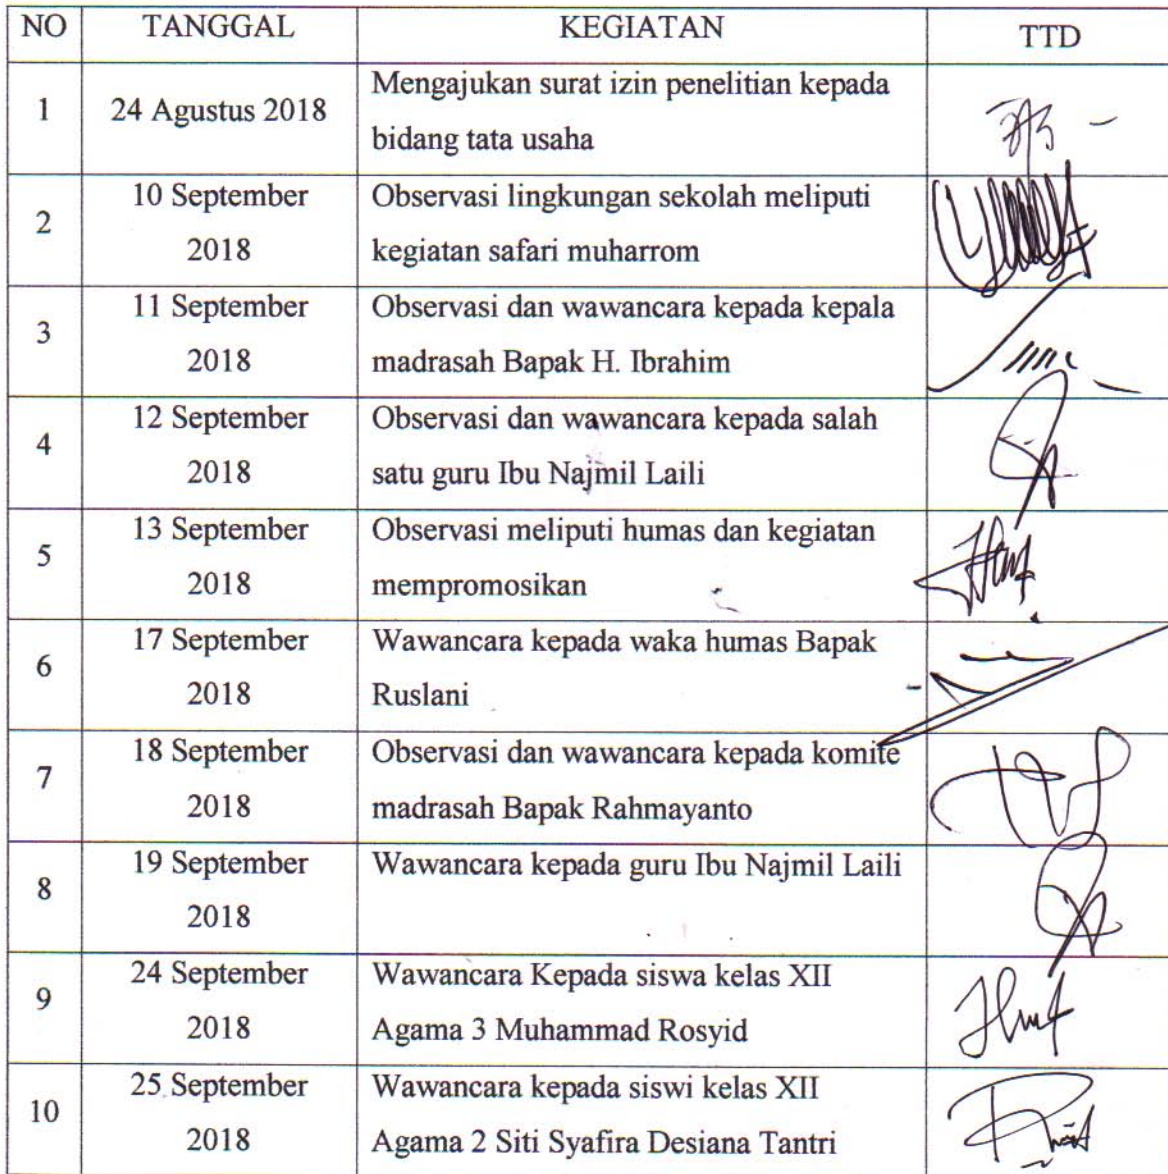 NO TANGGAL KEGIATAN TTD
1 24 Agustus 2018 Mengajukan surat izin penelitian kepada
bidang tata usaha
2 10 September Observasi lingkungan sekolah meliputi
2018 kegiatan safari muharrom
3 11 September Observasi dan wawancara kepada kepala
2018 madrasah Bapak H. Ibrahim
4 12 September Observasi dan wawancara kepada salah
2018 satu guru Ibu Najmil Laili
5 13 September Observasi meliputi humas dan kegiatan
2018 mempromosikan
6 17 September Wawancara kepada waka humas Bapak
2018 Ruslani
7 18 September Observasi dan wawancara kepada komite
2018 madrasah Bapak Rahmayanto
8 19 September Wawancara kepada guru Ibu Najmil Laili
2018
9 24 September Wawancara Kepada siswa kelas XII
2018 Agama 3 Muhammad Rosyid
10 25 September Wawancara kepada siswi kelas XII
2018 Agama 2 Siti Syafira Desiana Tantri